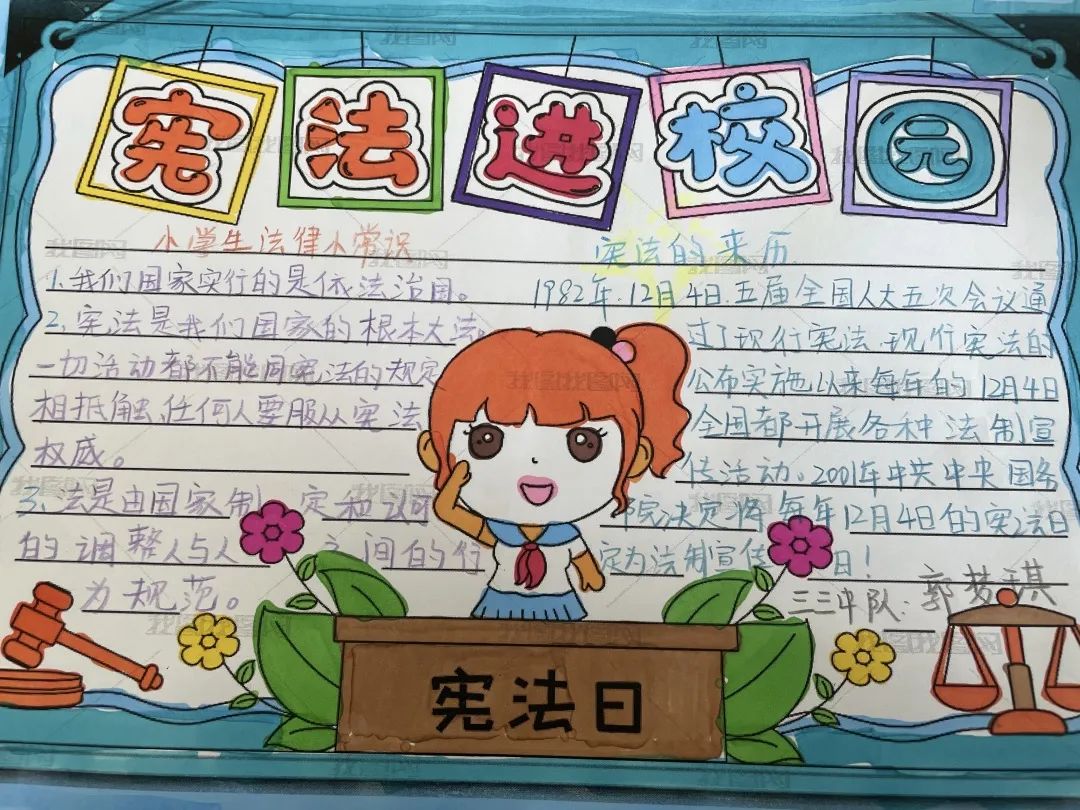 宪法进校园
小学生法律小常识
1.我们国家实行的是依法治国。
2.宪法是我们国家的根本大法。
一切活动都不能同宪法的规定
相抵触,任何人要服从宪法
权威。
3.法是由国家制定和认可
的调整人与人之间的行
为规范。
宪法的来历
1982年.12月4日.五届全国人大五次会议通
过了现行宪法.现行宪法的
公布实施以来每年的12月4日
全国都开展各种法制宣
传活动。2001年中共中央国务
院决定将每年12月4日的实法日
定为法制宣传日!
三三中队:郭梦琪
宪法日